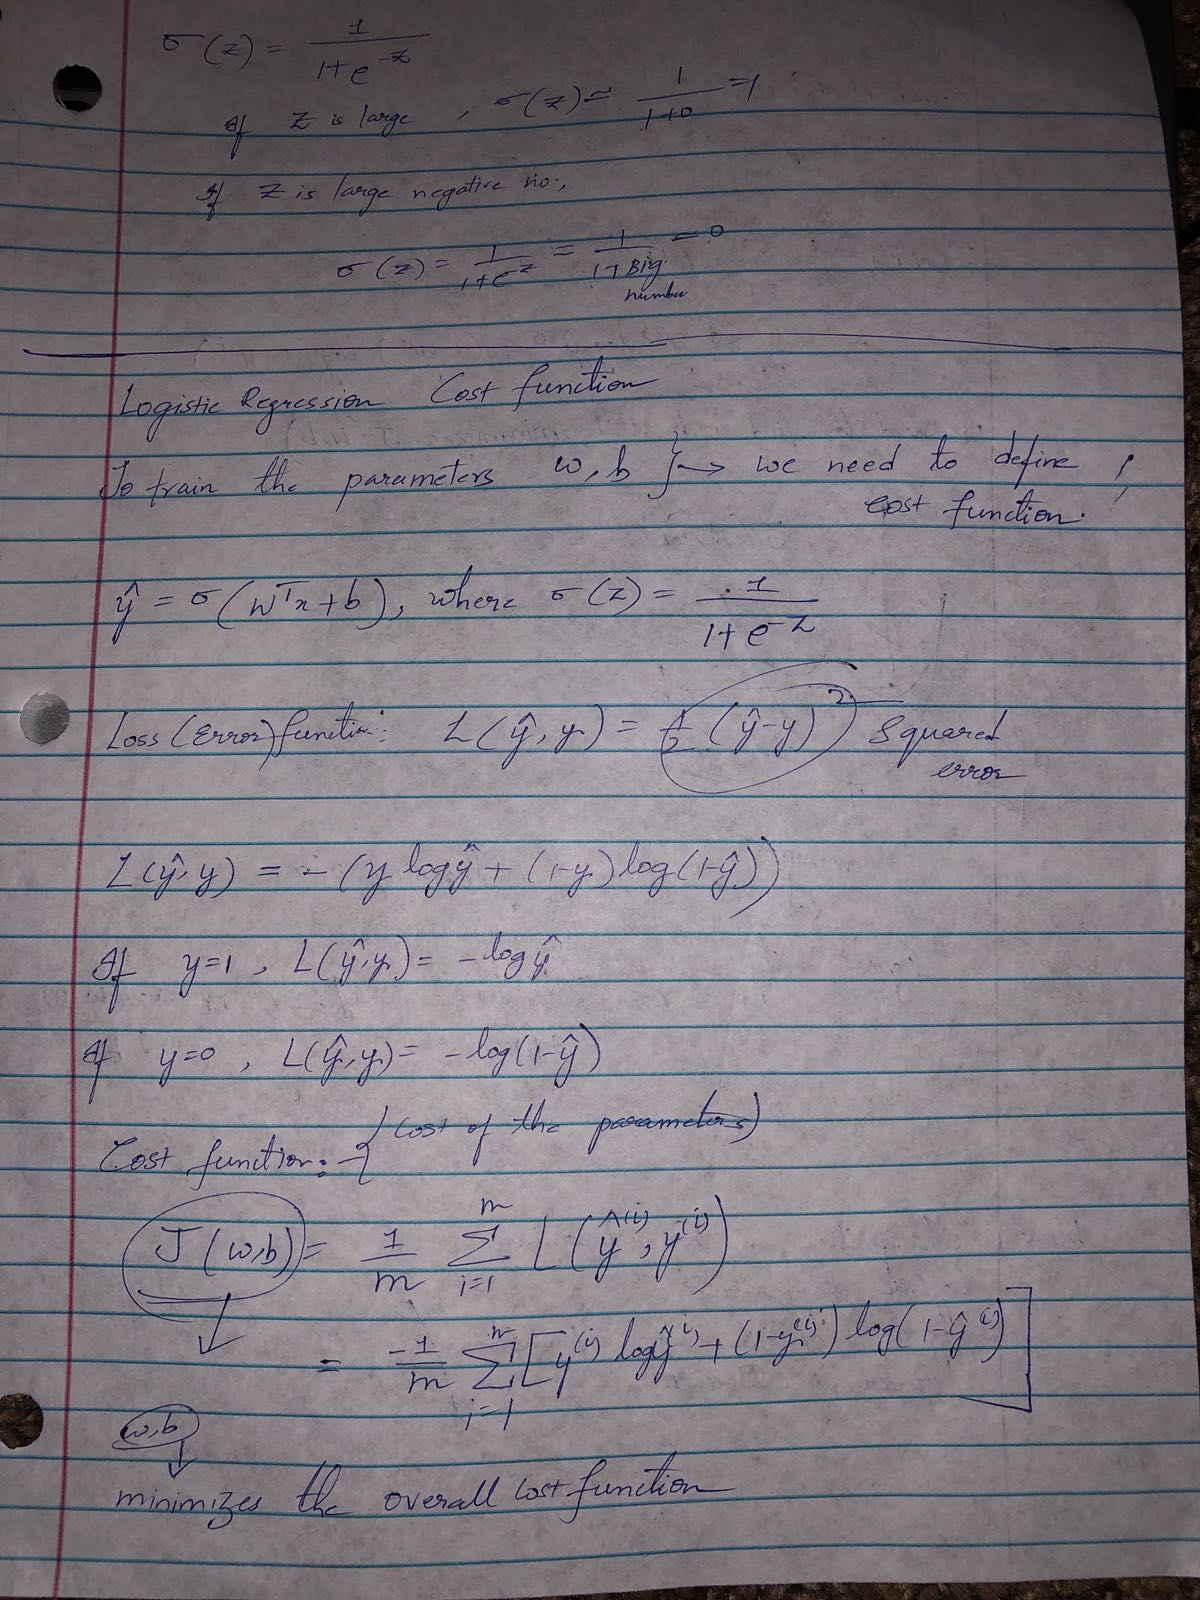 σ(z) = 1/(1+e^-z)
If z is large, σ(z) ≈ 1/(1+0) = 1
If z is large negative no.,
σ(z) = 1/(1+e^z) = 1/(1+ Big number) ≈ 0
Logistic Regression Cost function
To train the parameters w, b } → we need to define
cost function.
ŷ = σ(wᵀx + b), where σ(z) = 1/(1+e^-z)
Loss (Error) function: L(ŷ, y) = 1/2 (ŷ-y)² Squared
error
L(ŷ, y) = - (y log ŷ + (1-y) log(1-ŷ))
If y=1, L(ŷ, y) = -log ŷ
If y=0, L(ŷ, y) = -log(1-ŷ)
Cost function: - { Cost of the parameters)
J(w,b) = 1/m Σ_{i=1}^{m} L(ŷ^(i), y^(i))
= -1/m Σ_{i=1}^{m} [y^(i) log ŷ^(i) + (1-y^(i)) log(1-ŷ^(i))]
w,b
minimizes the overall cost function